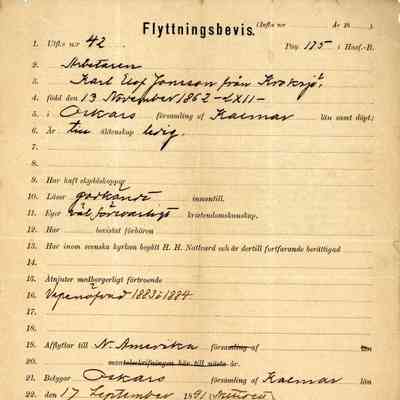 Flyttningsbevis. (Infl:s n:r År 18 ).
1. Utfl:s n:r 42. Pag. 175 i Husf.-B.
2. Arbetaren
3. Karl Elof Jonsson från Kroksjö,
4. född den 13 November 1862 -LXII-
5. i Oskars församling af Kalmar län samt döpt;
6. Är till äktenskap ledig.
7.
8.
9. Har haft skyddskoppor
10. Läser godkändt innantill.
11. Eger väl försvarligt kristendomskunskap.
12. Har bevistat förhören
13. Har inom svenska kyrkan begått H. H. Nattvard och är dertill fortfarande berättigad
14.
15. Åtnjuter medborgerligt förtroende
16. Vapenöfvad 1883 & 1884.
17.
18.
19. Afflyttar till N. Amerika församling af län
20. mantalsskrifningen här till nästa år.
21. Betygar Oskars församling af Kalmar län
22. den 17 September 1891